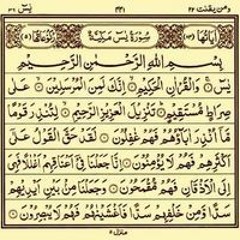 ومن يقنت ٢٢ ٤٤١ يٰسٓ ٣٦
اٰيَاتُهَا (٨٣) سُوْرَةُ يٰسٓ مَكِّيَّةٌ رُكُوْعَاتُهَا (٥)
بِسْمِ اللّٰهِ الرَّحْمٰنِ الرَّحِيْمِ
يٰسٓ ۝ وَالْقُرْاٰنِ الْحَكِيْمِ ۝ اِنَّكَ لَمِنَ الْمُرْسَلِيْنَ ۝ عَلٰى
صِرَاطٍ مُّسْتَقِيْمٍ ۝ تَنْزِيْلَ الْعَزِيْزِ الرَّحِيْمِ ۝ لِتُنْذِرَ قَوْمًا
مَّاۤ اُنْذِرَ اٰبَآؤُهُمْ فَهُمْ غٰفِلُوْنَ ۝ لَقَدْ حَقَّ الْقَوْلُ عَلٰۤى
اَكْثَرِهِمْ فَهُمْ لَا يُؤْمِنُوْنَ ۝ اِنَّا جَعَلْنَا فِيْۤ اَعْنَاقِهِمْ اَغْلٰلًا فَهِيَ
اِلَى الْاَذْقَانِ فَهُمْ مُّقْمَحُوْنَ ۝ وَجَعَلْنَا مِنْۢ بَيْنِ اَيْدِيْهِمْ
سَدًّا وَّمِنْ خَلْفِهِمْ سَدًّا فَاَغْشَيْنٰهُمْ فَهُمْ لَا يُبْصِرُوْنَ ۝
منزل ٥